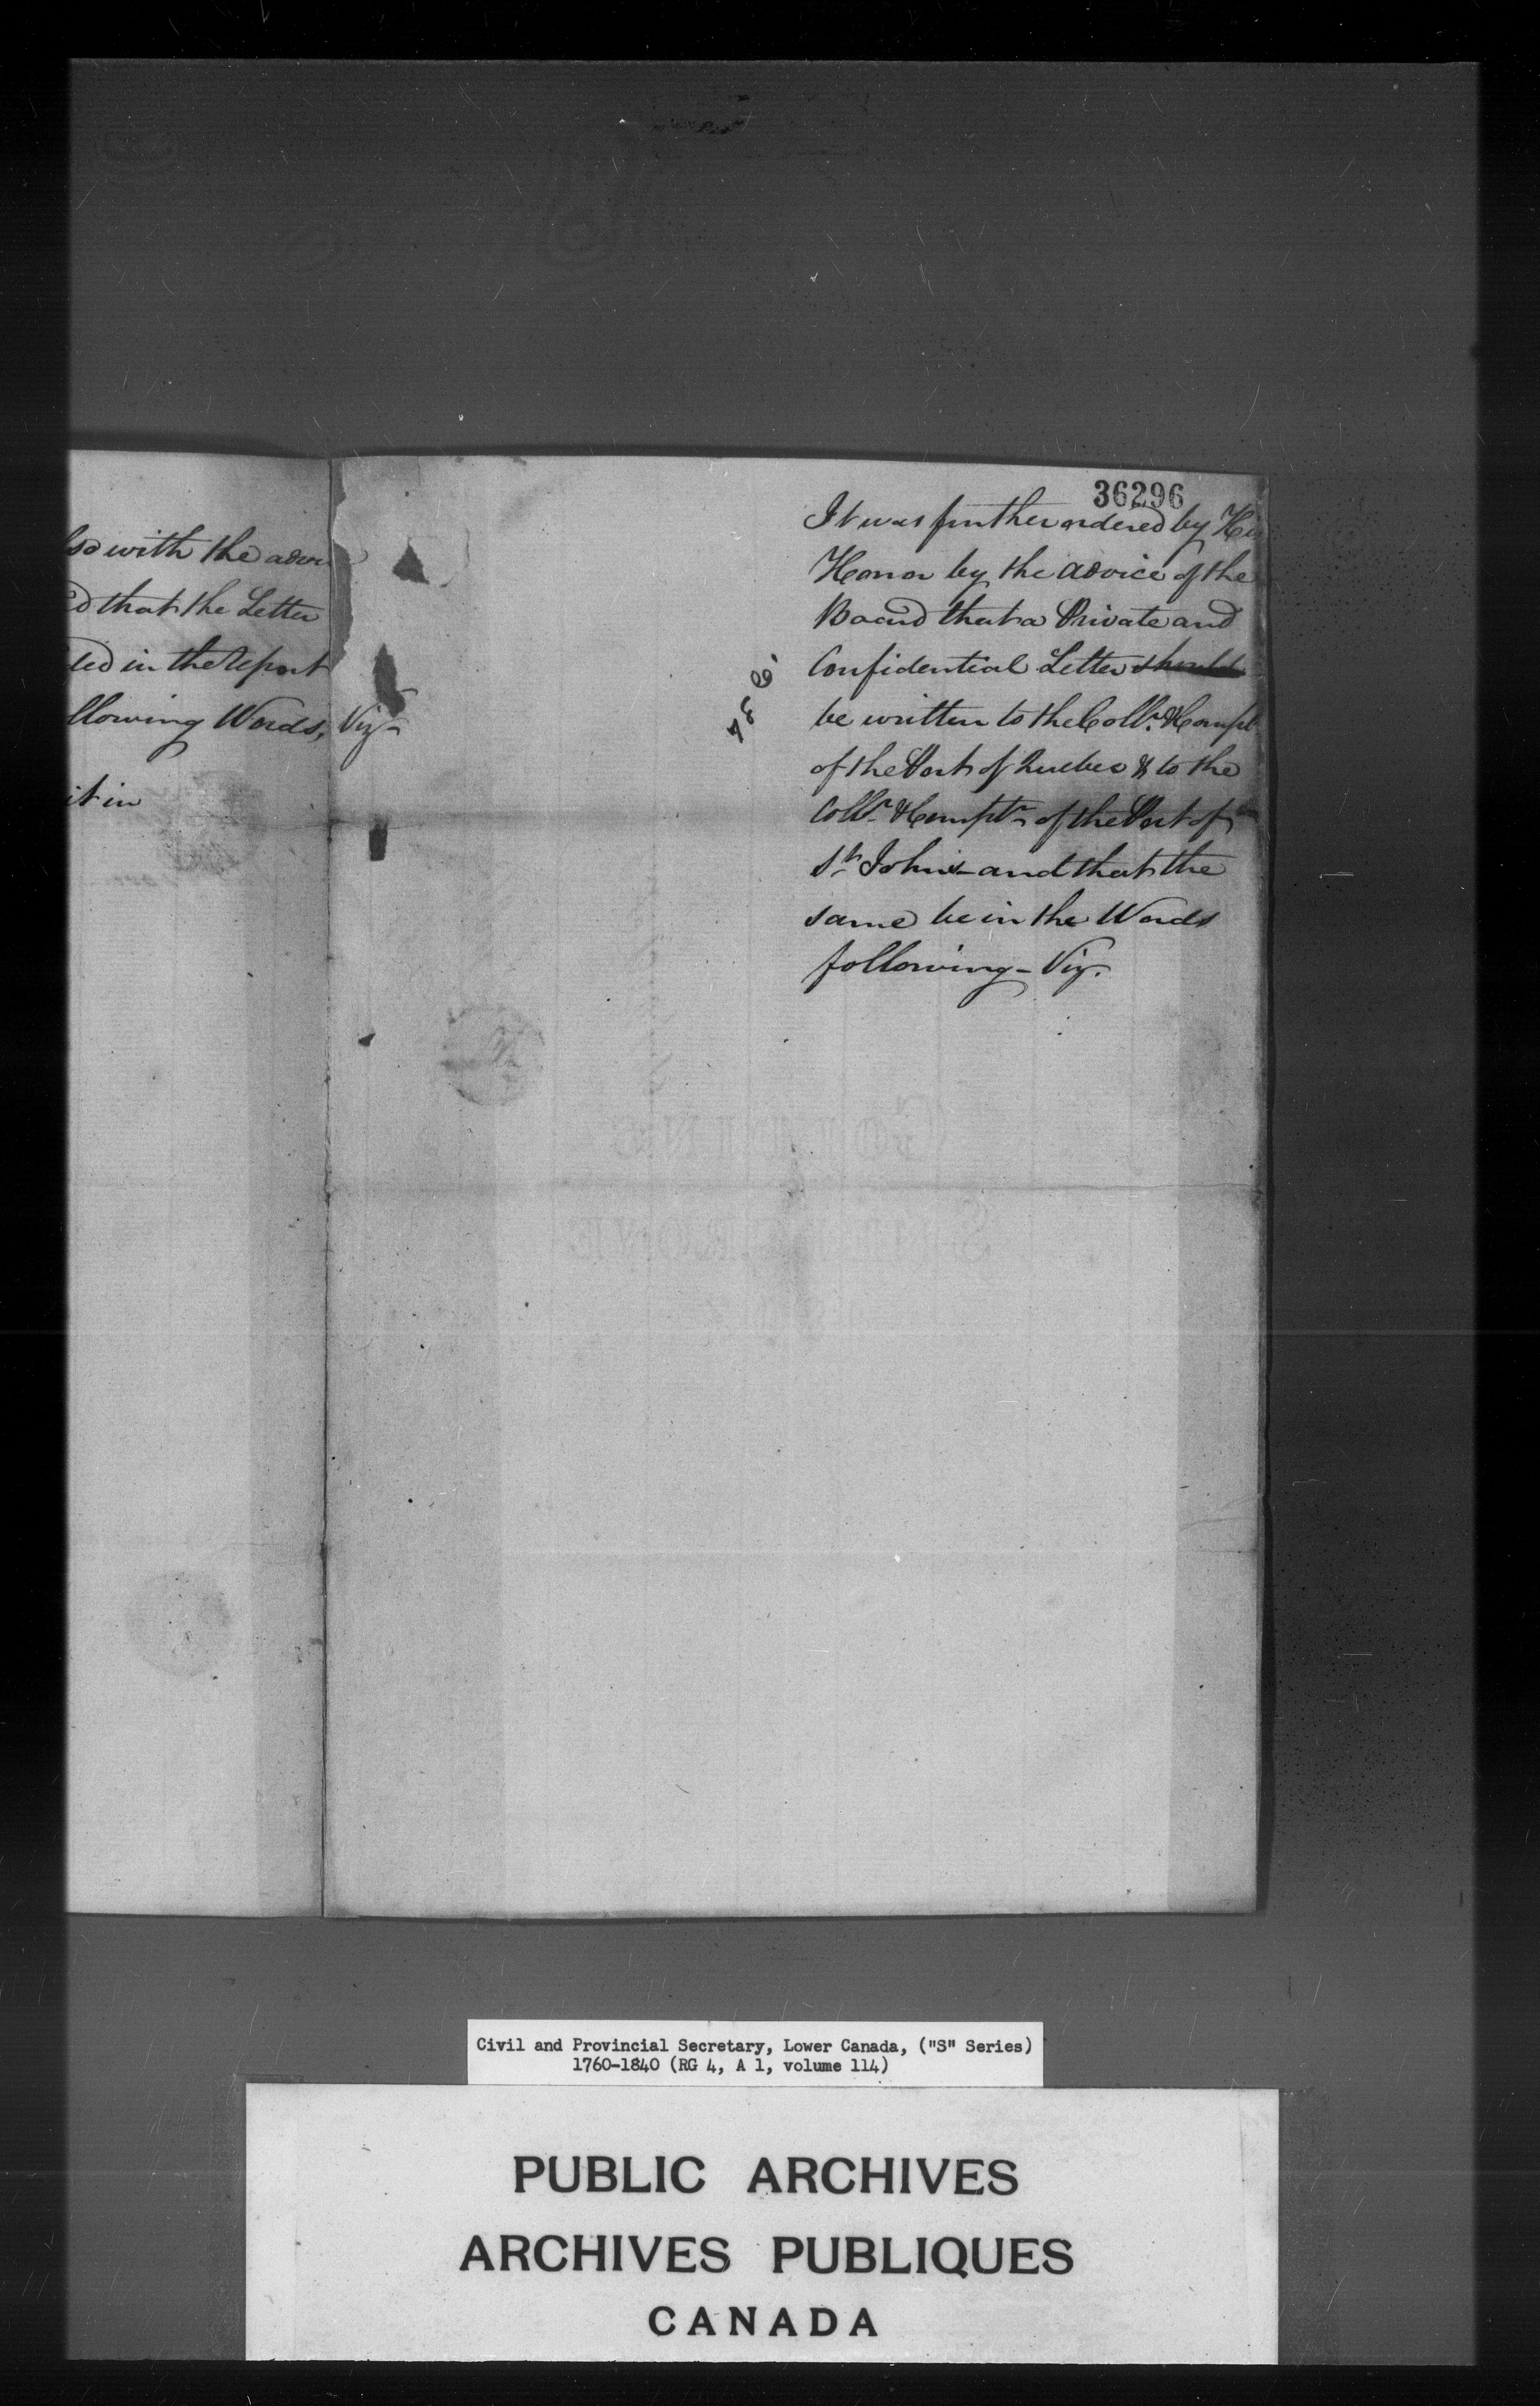 36296
so with the advi
ed that the Letter
ted in the Report
llowing Words, Viz
it in
It was further ordered by His
Honor by the advice of the
Board that a Private and
Confidential Letter should
be written to the Collr. & Compt
of the Port of Quebec & to the
Collr. & Comptr. of the Port of
St. Johns and that the
same be in the Words
following - Viz.
Civil and Provincial Secretary, Lower Canada, ("S" Series)
1760-1840 (RG 4, A 1, volume 114)
PUBLIC ARCHIVES
ARCHIVES PUBLIQUES
CANADA